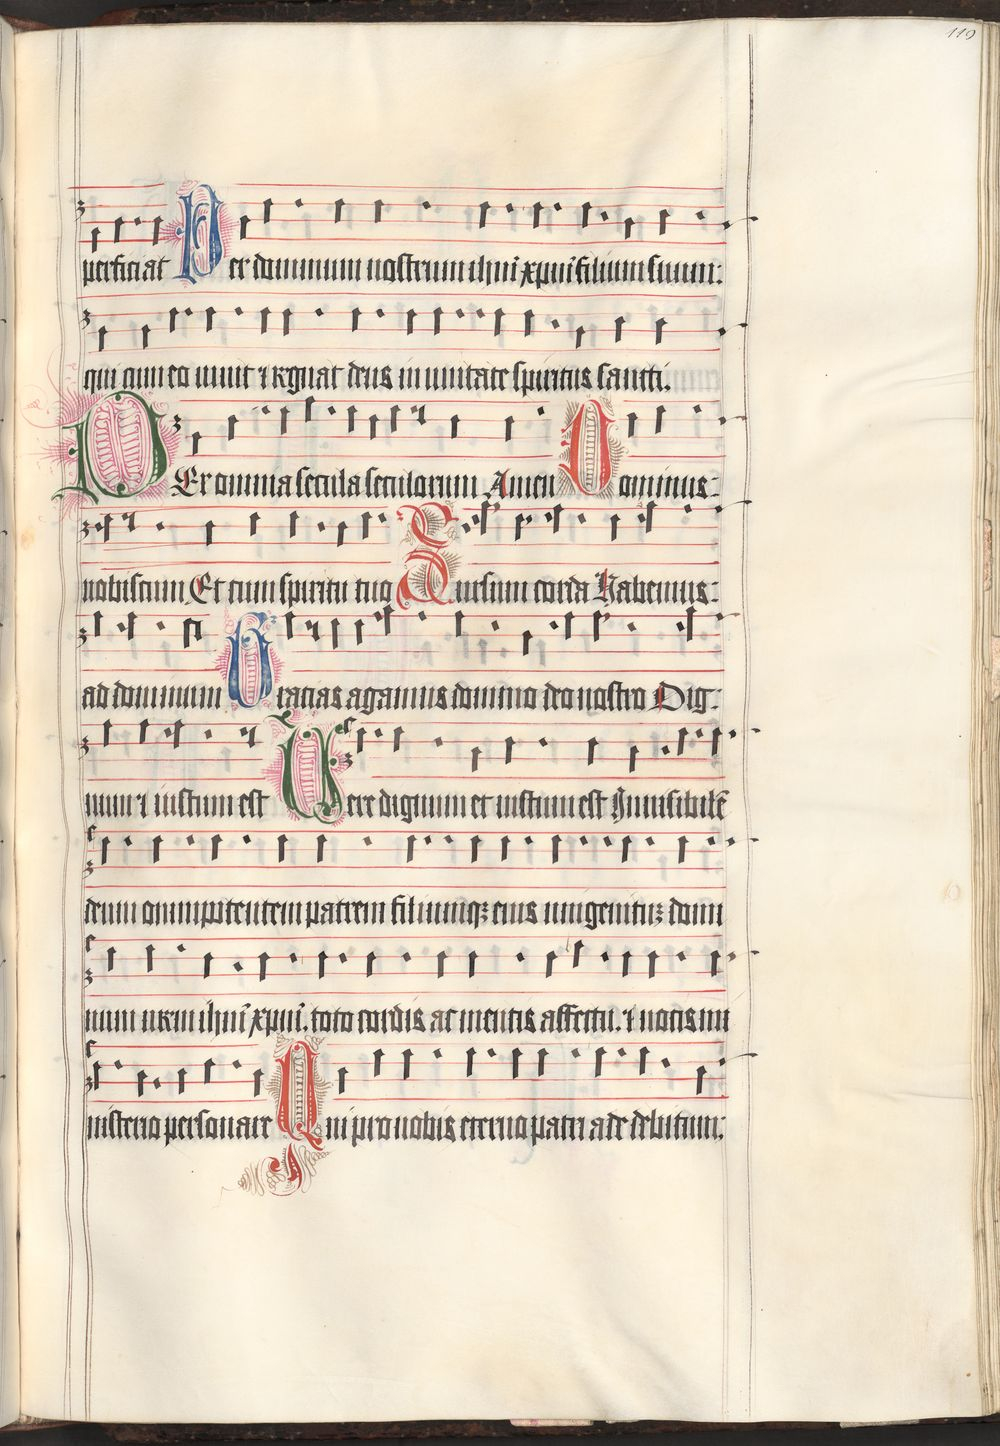 119
perficiat Per dominum nostrum ihm̄ xpm̄ filium suum:
qui cum eo uiuit ⁊ regnat deus in unitate spiritus sancti.
PEr omnia secula seculorum Amen Dominus:
nobiscum Et cum spiritu tuo Sursum corda Habemus:
ad dominum Gracias agamus domino deo nostro Dig:
num ⁊ iustum est Uere dignum et iustum est Inuisibilē
deum omnipotentem patrem filiumqꝫ eius unigenituꝫ domi
num nrm ihm̄ xpm̄. toto cordis ac mentis affectu. ⁊ uocis mi
nisterio personare Qui pro nobis eterno patri ade debitum: